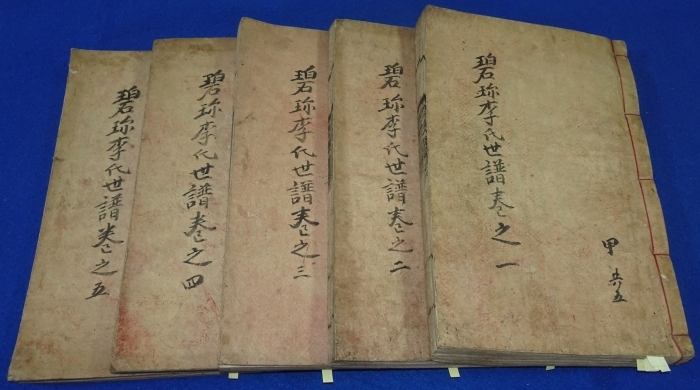 碧珎李氏世譜卷之一
甲 共五
碧珎李氏世譜卷之二
碧珎李氏世譜卷之三
碧珎李氏世譜卷之四
碧珎李氏世譜卷之五